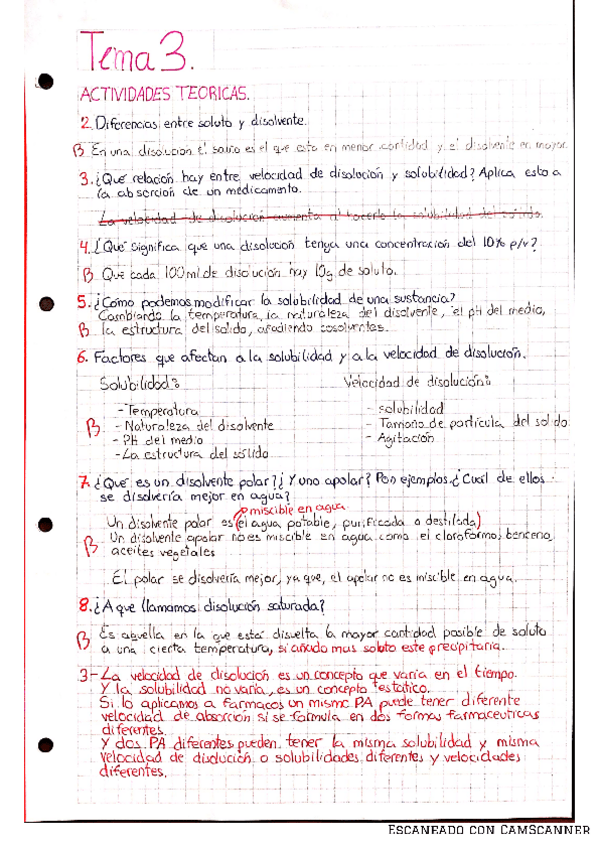 Tema 3.
ACTIVIDADES TEORICAS.
2. Diferencias entre soluto y disolvente.
B En una disolución el soluto es el que esta en menor cantidad y el disolvente en mayor.
3. ¿Qué relación hay entre velocidad de disolución y solubilidad? Aplica esto a
la absorción de un medicamento.
La velocidad de disolución aumenta al hacerlo la solubilidad del sólido.
4. ¿Qué significa que una disolución tenga una concentración del 10% p/v?
B Que cada 100ml de disolución hay 10g de soluto.
5. ¿Cómo podemos modificar la solubilidad de una sustancia?
Cambiando la temperatura, la naturaleza del disolvente, el pH del medio,
B la estructura del solido, añadiendo cosolventes.
6. Factores que afectan a la solubilidad y a la velocidad de disolución.
Solubilidad: Velocidad de disolución:
- Temperatura - solubilidad
B - Naturaleza del disolvente - Tamaño de partícula del solido
- PH del medio - Agitación
- La estructura del sólido
7. ¿Qué es un disolvente polar? ¿Y uno apolar? Pon ejemplos. ¿Cuál de ellos
se disolvería mejor en agua?
miscible en agua
Un disolvente polar es (el agua potable, purificada o destilada)
B Un disolvente apolar no es miscible en agua como el cloroformo, benceno,
aceites vegetales
El polar se disolvería mejor, ya que, el apolar no es miscible en agua.
8. ¿A que llamamos disolución saturada?
B Es aquella en la que está disuelta la mayor cantidad posible de soluto
a una cierta temperatura, si añado mas soluto este precipitaria.
3- La velocidad de disolución es un concepto que varía en el tiempo.
Y la solubilidad no varía, es un concepto estático.
Si lo aplicamos a farmacos un mismo PA puede tener diferente
velocidad de absorción si se formula en dos formas farmaceuticas
diferentes.
Y dos PA diferentes pueden tener la misma solubilidad y misma
velocidad de disolución o solubilidades diferentes y velocidades
diferentes.
ESCANEADO CON CAMSCANNER